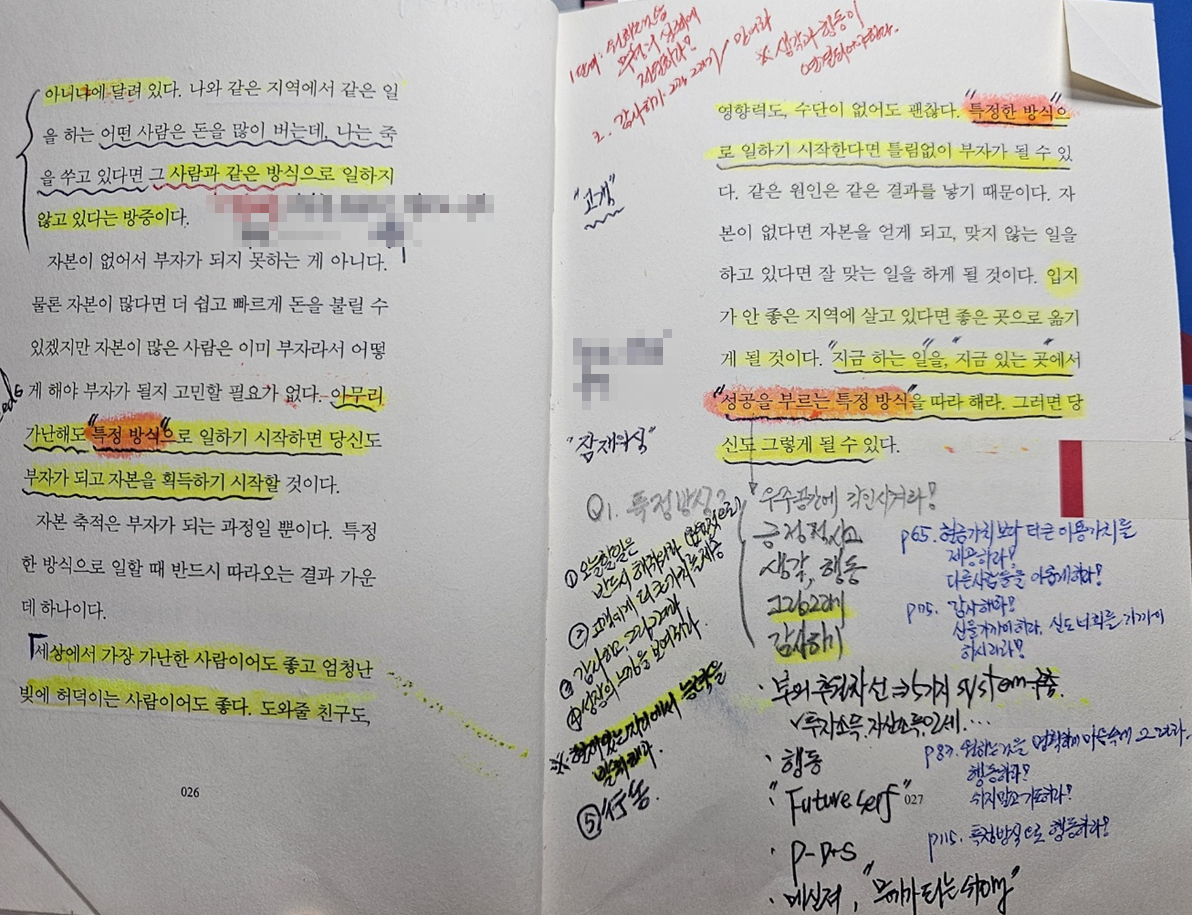 아니냐에 달려 있다. 나와 같은 지역에서 같은 일
을 하는 어떤 사람은 돈을 많이 버는데, 나는 죽
을 쑤고 있다면 그 사람과 같은 방식으로 일하지
않고 있다는 방증이다.
자본이 없어서 부자가 되지 못하는 게 아니다.
물론 자본이 많다면 더 쉽고 빠르게 돈을 불릴 수
있겠지만 자본이 많은 사람은 이미 부자라서 어떻
게 해야 부자가 될지 고민할 필요가 없다. 아무리
가난해도 "특정 방식"으로 일하기 시작하면 당신도
부자가 되고 자본을 획득하기 시작할 것이다.
자본 축적은 부자가 되는 과정일 뿐이다. 특정
한 방식으로 일할 때 반드시 따라오는 결과 가운
데 하나이다.
세상에서 가장 가난한 사람이어도 좋고 엄청난
빚에 허덕이는 사람이어도 좋다. 도와줄 친구도,
026
1단계:
무형의 실체에
전념하라!
2. 감사하기. 그리고 믿어라
※ 생각과 행동이
연결되어야한다.
영향력도, 수단이 없어도 괜찮다. "특정한 방식"으
로 일하기 시작한다면 틀림없이 부자가 될 수 있
다. 같은 원인은 같은 결과를 낳기 때문이다. 자
본이 없다면 자본을 얻게 되고, 맞지 않는 일을
하고 있다면 잘 맞는 일을 하게 될 것이다. 입지
가 안 좋은 지역에 살고 있다면 좋은 곳으로 옮기
게 될 것이다. "지금 하는 일"을, "지금 있는 곳"에서
"성공을 부르는 특정 방식"을 따라 해라. 그러면 당
신도 그렇게 될 수 있다.
"고객"
"잠재의식"
Q1. 특정방식?
우주공간에 각인시켜라!
긍정적사고
생각, 행동
그림그리기
감사하기
① 오늘할일은
반드시 해치워라
② 고객에게 더 큰가치를 제공
③ 감사하고, 그림그리라
④ 성장의 느낌을 보여줘라.
※. 현재있는 자리에서 능력을
발휘해라.
⑤ 行동.
p65. 현금가치보다 더큰 이용가치를
제공하라!
다른사람들을 이롭게하라!
p75. 감사해라!
신을가까이하라. 신도 너희를 가까이
하시리라!
· 부의 추월차선 ⇒ 5가지 system 구축.
투자소득, 자산소득, 인세. …
· 행동
"Future self"
027
· P-D-S
p87. 원하는것을 명확하게 마음속에 그려라.
행동하라!
쉬지말고 기도하라!
p115. 특정방식으로 행동하라!